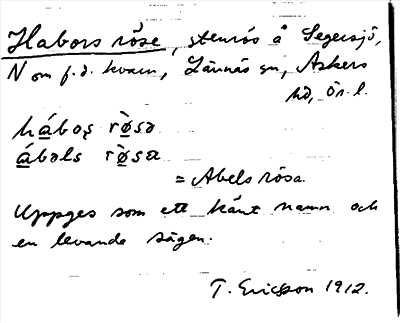 Habors röse, stenrös å Segersjö,
N om f.d. kvarn, Lännäs sn, Askers
hd, Ör. l.
háboʂ rò̱sə
ábəls rò̱sa
= Abels rösa.
Uppges som ett känt namn och
en levande sägen.
T. Ericsson 1912.